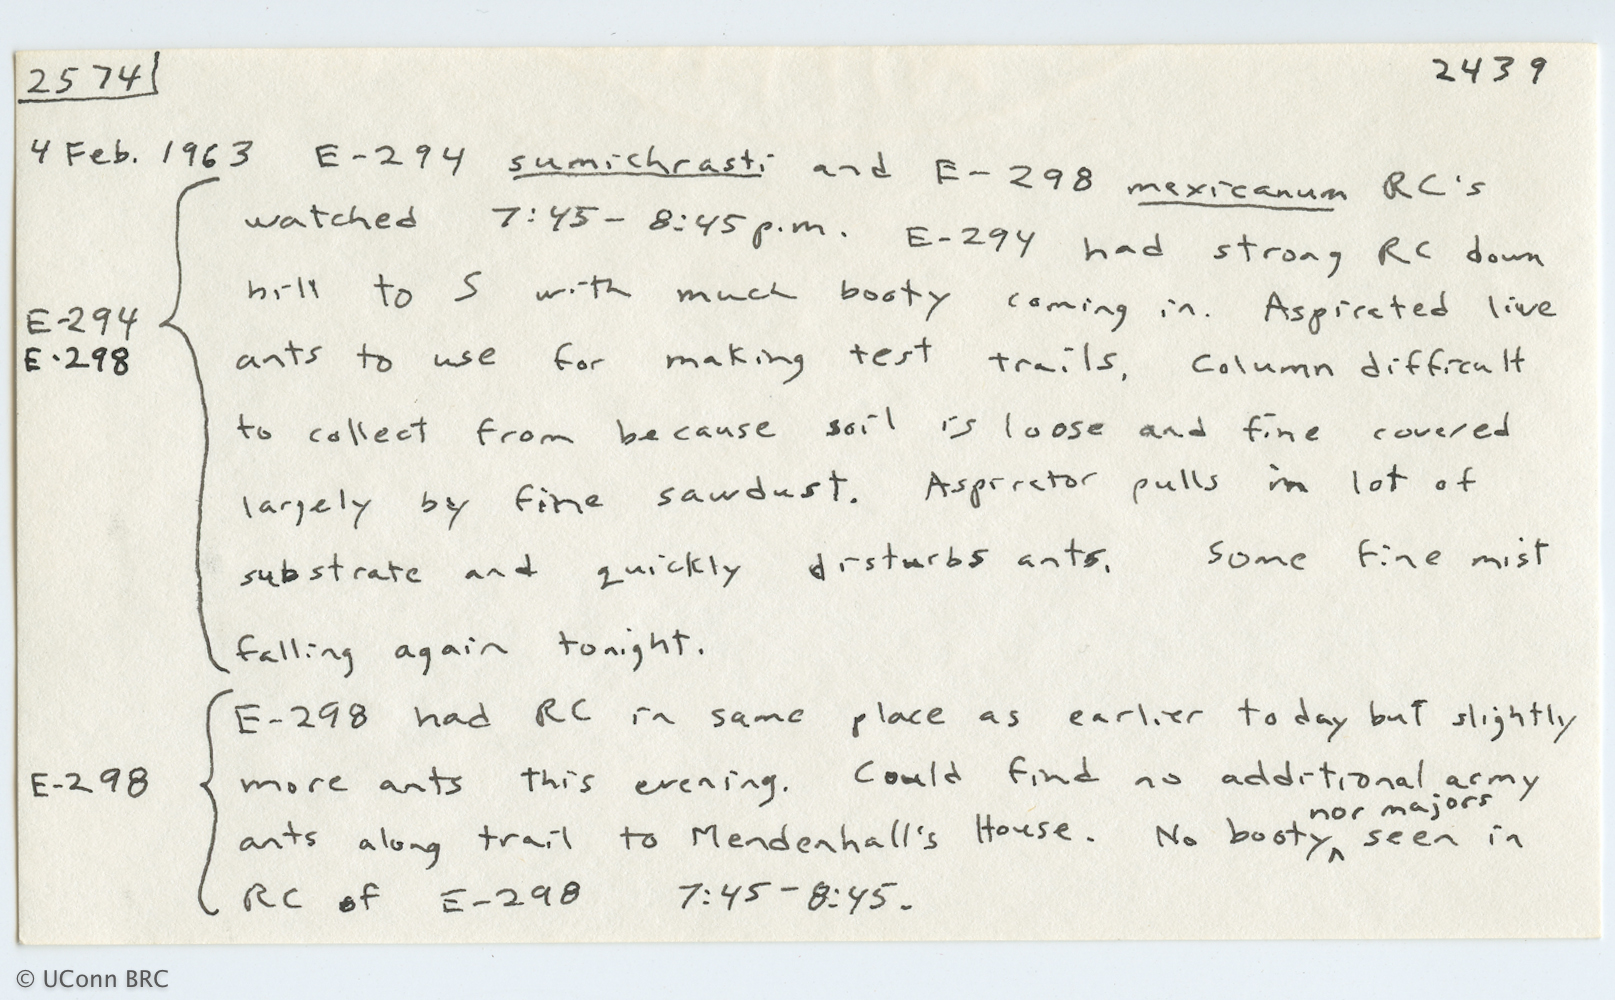 2574
2439
4 Feb. 1963 E-294 sumichrasti and E-298 mexicanum RC's
watched 7:45-8:45 p.m. E-294 had strong RC down
hill to S with much booty coming in. Aspirated live
E-294
ants to use for making test trails. Column difficult
E-298
to collect from because soil is loose and fine covered
largely by fine sawdust. Aspirator pulls in lot of
substrate and quickly disturbs ants. Some fine mist
falling again tonight.
E-298 had RC in same place as earlier today but slightly
E-298
more ants this evening. Could find no additional army
ants along trail to Mendenhall's House. No booty nor majors seen in
RC of E-298 7:45-8:45.
© UConn BRC